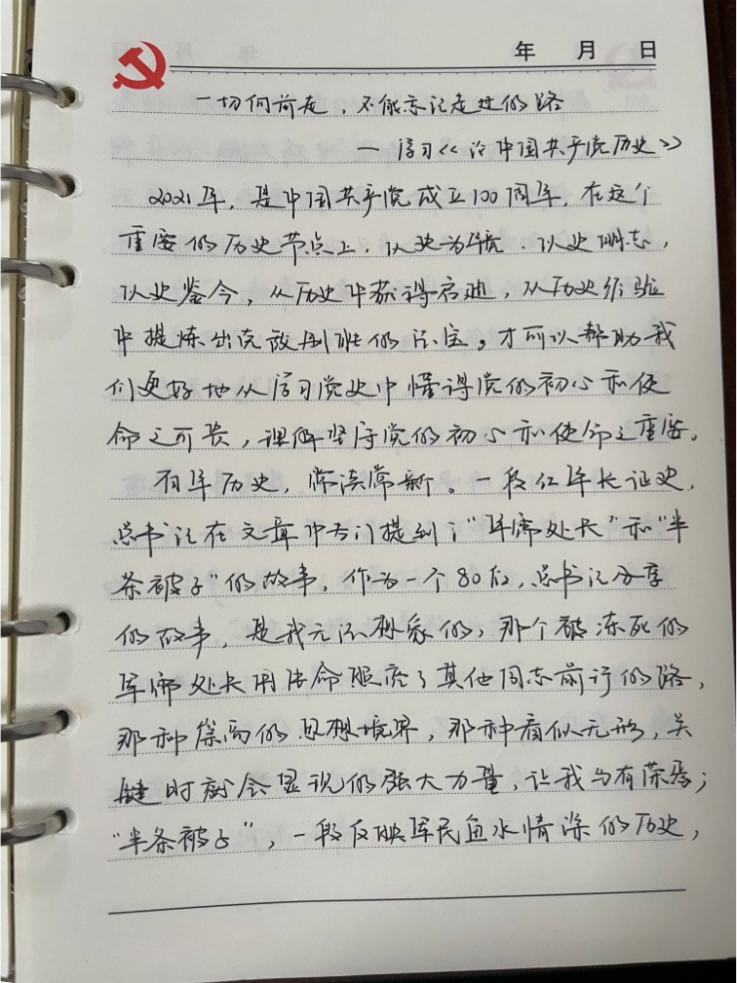 年 月 日
一切向前走，不能忘记走过的路
— 学习《论中国共产党历史》
2021年，是中国共产党成立100周年，在这个
重要的历史节点上，以史为镜、以史明志，
以史鉴今，从历史中获得启迪，从历史经验
中提炼出克敌制胜的法宝。才可以帮助我
们更好地从学习党史中懂得党的初心和使
命之可贵，理解坚守党的初心和使命之重要。
百年历史，常读常新。一段红军长征史，
总书记在文章中专门提到了“军需处长”和“半
条被子”的故事。作为一个80后，总书记分享
的故事，是我无法想象的，那个被冻死的
军需处长用生命照亮了其他同志前行的路，
那种崇高的思想境界，那种看似无形，关
键时就会显现的强大力量，让我与有荣焉；
“半条被子”，一段反映军民鱼水情深的历史，